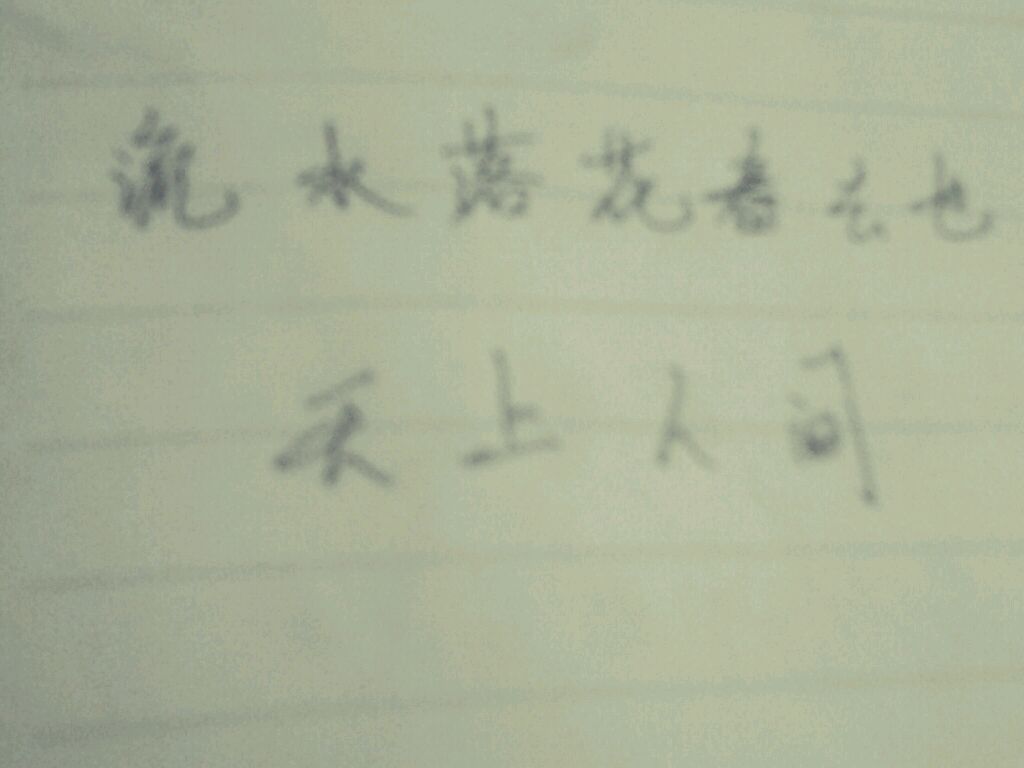 流水落花春去也
天上人间